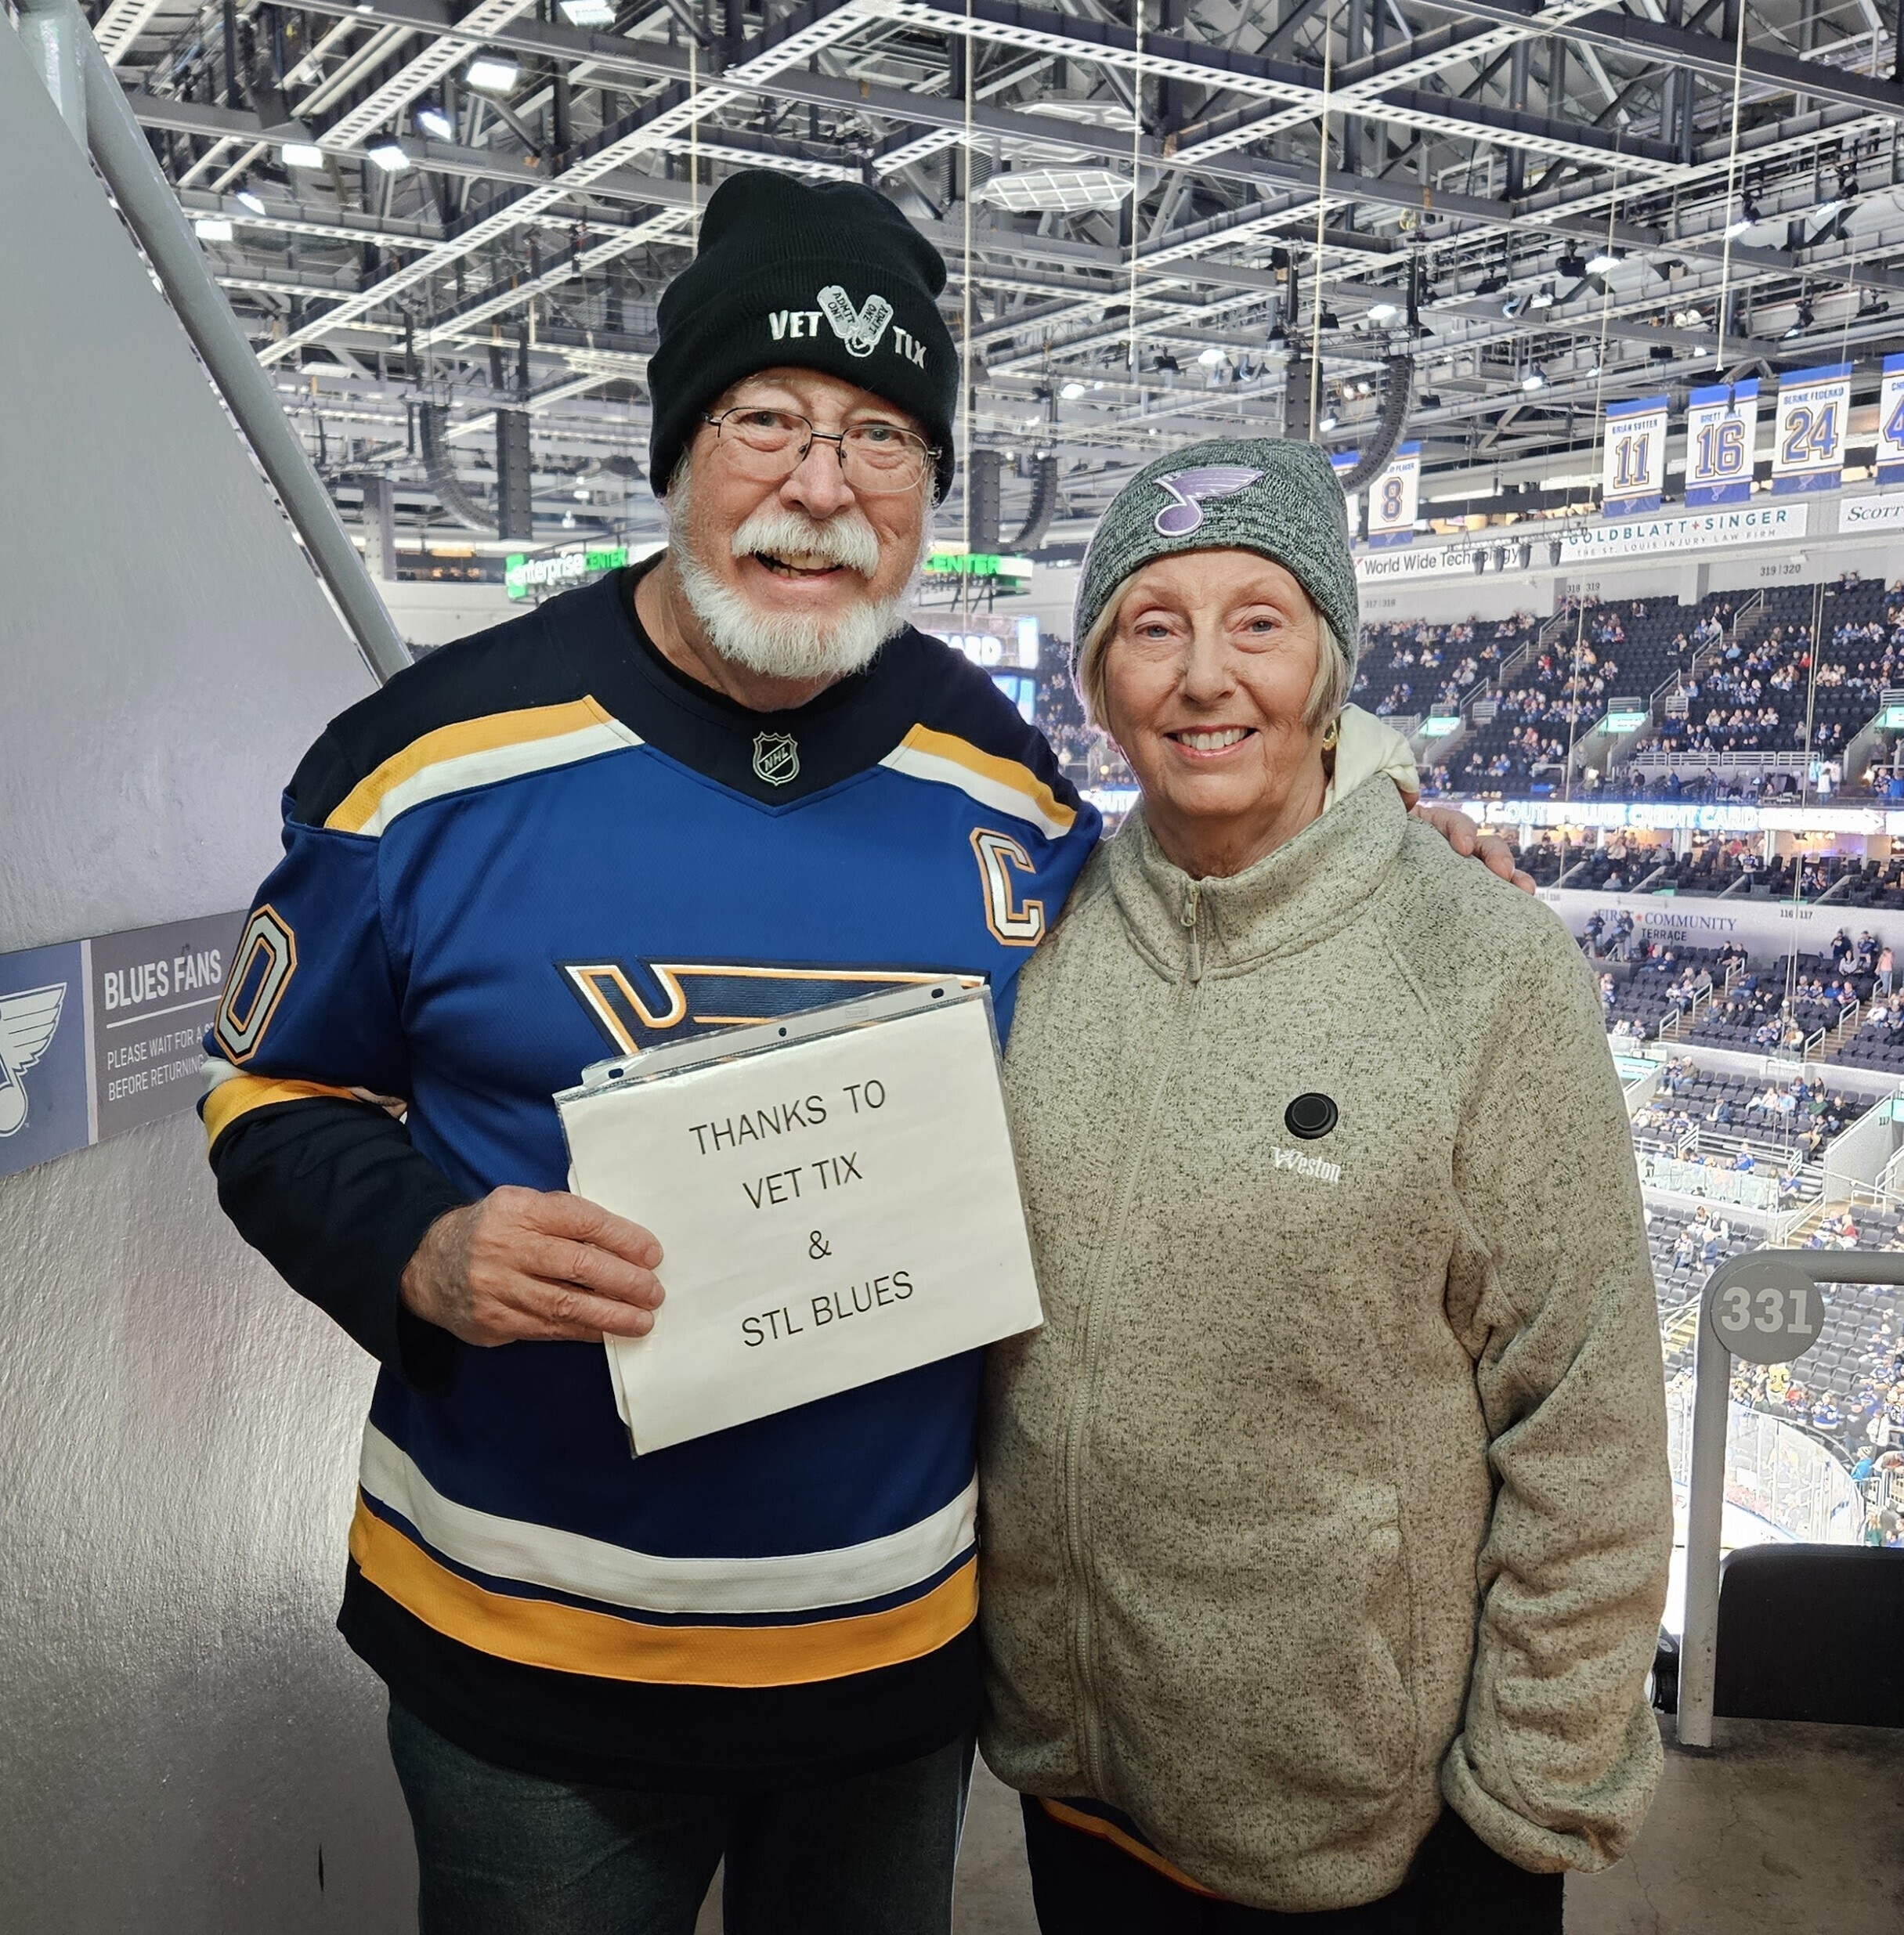 VET
TIX
ADMIT
ONE
ADMIT
ONE
BRIAN SUTTER
11
BRETT HULL
16
BERNIE FEDERKO
24
8
GOLDBLATT+SINGER
THE ST. LOUIS INJURY LAW FIRM
World Wide Technology
enterprise CENTER
CENTER
317|318
318|319
319|320
NHL
C
0
FIRST COMMUNITY
TERRACE
116|117
BLUES FANS
PLEASE WAIT FOR A
BEFORE RETURNING
THANKS TO
VET TIX
&
STL BLUES
Weston
331